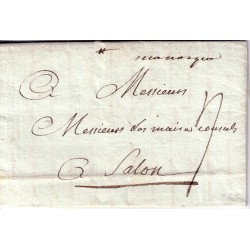 manosque
A Messieurs
Messieurs les maire consuls
A Salon